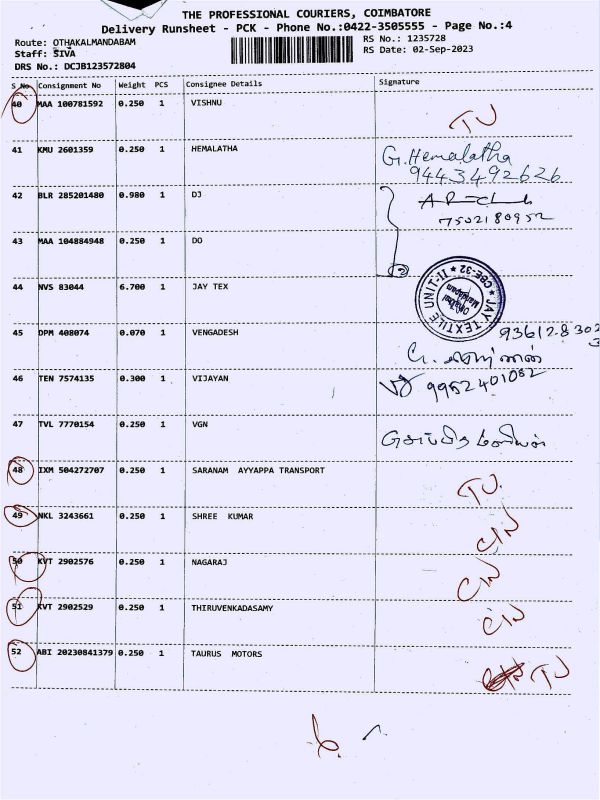 THE PROFESSIONAL COURIERS, COIMBATORE
Delivery Runsheet - PCK - Phone No.:0422-3505555 - Page No.:4
Route: OTHAKALMANDABAM
RS No.: 1235728
Staff: SIVA
RS Date: 02-Sep-2023
DRS No.: DCJB123572804
S No Consignment No Weight PCS Consignee Details Signature
40 MAA 100781592 0.250 1 VISHNU
TU
41 KMU 2601359 0.250 1 HEMALATHA
G. Hemalatha
9443492626
42 BLR 285201480 0.980 1 DJ
7502180952
43 MAA 104884948 0.250 1 DO
2
44 NVS 83044 6.700 1 JAY TEX
★ JAY TEXTILE UNIT-II ★ CBE-32
45 DPM 408074 0.070 1 VENGADESH
46 TEN 7574135 0.300 1 VIJAYAN
9952401082
47 TVL 7770154 0.250 1 VGN
48 IXM 504272707 0.250 1 SARANAM AYYAPPA TRANSPORT
TU.
49 NKL 3243661 0.250 1 SHREE KUMAR
C/N
50 KVT 2902576 0.250 1 NAGARAJ
C/N
51 KVT 2902529 0.250 1 THIRUVENKADASAMY
C/N
52 ABI 20230841379 0.250 1 TAURUS MOTORS
TU